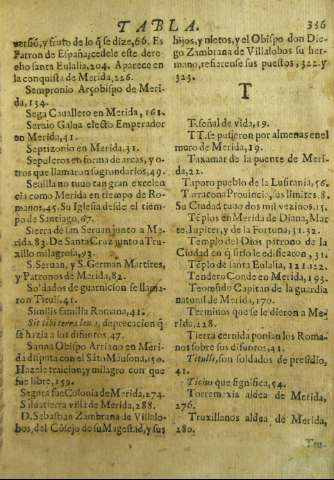 TABLA. 356
versió, y fruto de lo q̃ se dize, 66. Es
Patron de España; cedele este dere-
cho santa Eulalia, 204. Aparece en
la conquista de Merida, 226.
Sempronio Arçobispo de Meri-
da, 134.
Sega Cauallero en Merida, 161.
Sergio Galua electo Emperador
en Merida, 41.
Septizonio en Merida, 31.
Sepulcros en forma de arcas, y o-
tros que llamaron sugrundarios, 49.
Seuilla no tuuo tan gran excelen
cia como Merida en tiempo de Ro-
manos, 45. Su Iglesia desde el tiem-
po de Santiago, 67.
Sierra de san Seruan junto a Me-
rida, 83. De Santa Cruz junto a Tru-
xillo milagrosa, 93.
S. Seruan, y S. German Martires,
y Patronos de Merida, 82.
Soldados de guarnicion se llama-
ron Tituli, 41.
Similis familia Romana, 41.
Sit tibi terra leuis, deprecacion q̃
se hazia a los difuntos, 47.
Sunna Obispo Arriano en Meri-
da disputa con el Sãto Mausona, 150.
Hazele traicion, y milagro con que
fue libre, 159.
Segura fue Colonia de Merida, 274.
Saluatierra villa de Merida, 288.
D. Sebastian Zambrana de Villalo-
bos, del Cósejo de su Magestad, y sus
hijos, y nietos, y el Obispo don Die-
go Zambrana de Villalobos su her-
mano, refierense sus puestos, 322. y
323.
T
T. señal de vida, 19.
TT. se pusieron por almenas en el
muro de Merida, 19.
Taxamar de la puente de Meri-
da, 22.
Taporo pueblo de la Lusitania, 56.
Tarracona Prouincia, sus limites, 8.
Su Ciudad tuuo dos mil vezinos, 15.
Téplos en Merida de Diana, Mar-
te, Iupiter, y de la Fortuna, 31. 32.
Templo del Dios patrono de la
Ciudad en q̃ sitio le edificaron, 31.
Téplo de santa Eulalia, 121. 122.
Tendero Conde en Merida, 193.
Teomisto Capitan de la guardia
natural de Merida, 170.
Terminos que se le dieron a Me-
rida, 228.
Tierra cernida ponian los Roma-
nos sobre sus difuntos, 41.
Tituli, son soldados de presidio,
41.
que significa, 54.
Torremexia aldea de Merida,
276.
Truxillanos aldea de Merida,
280.
Tru-